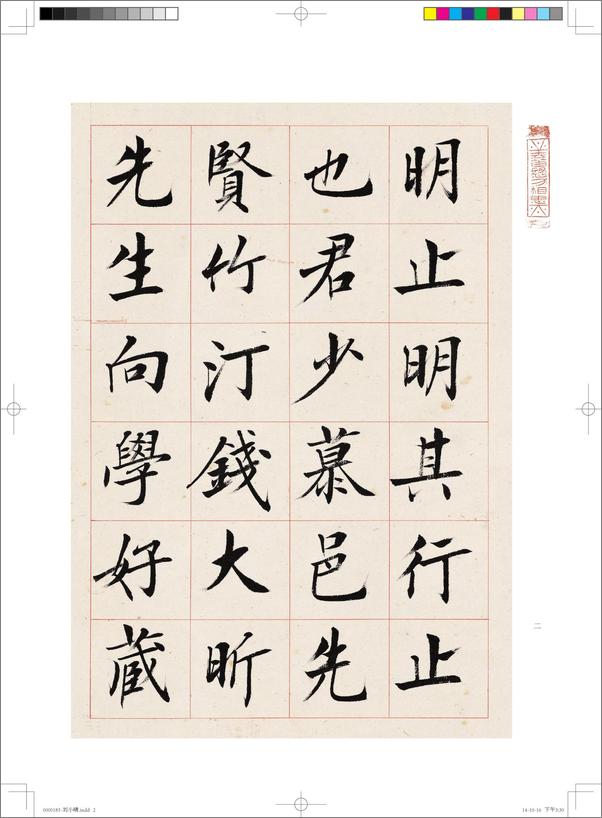 明止明其行止
也君少慕邑先
賢竹汀錢大昕
先生向學好蔵
二
0000185-刘小晴.indd 2
14-10-16 下午3:31